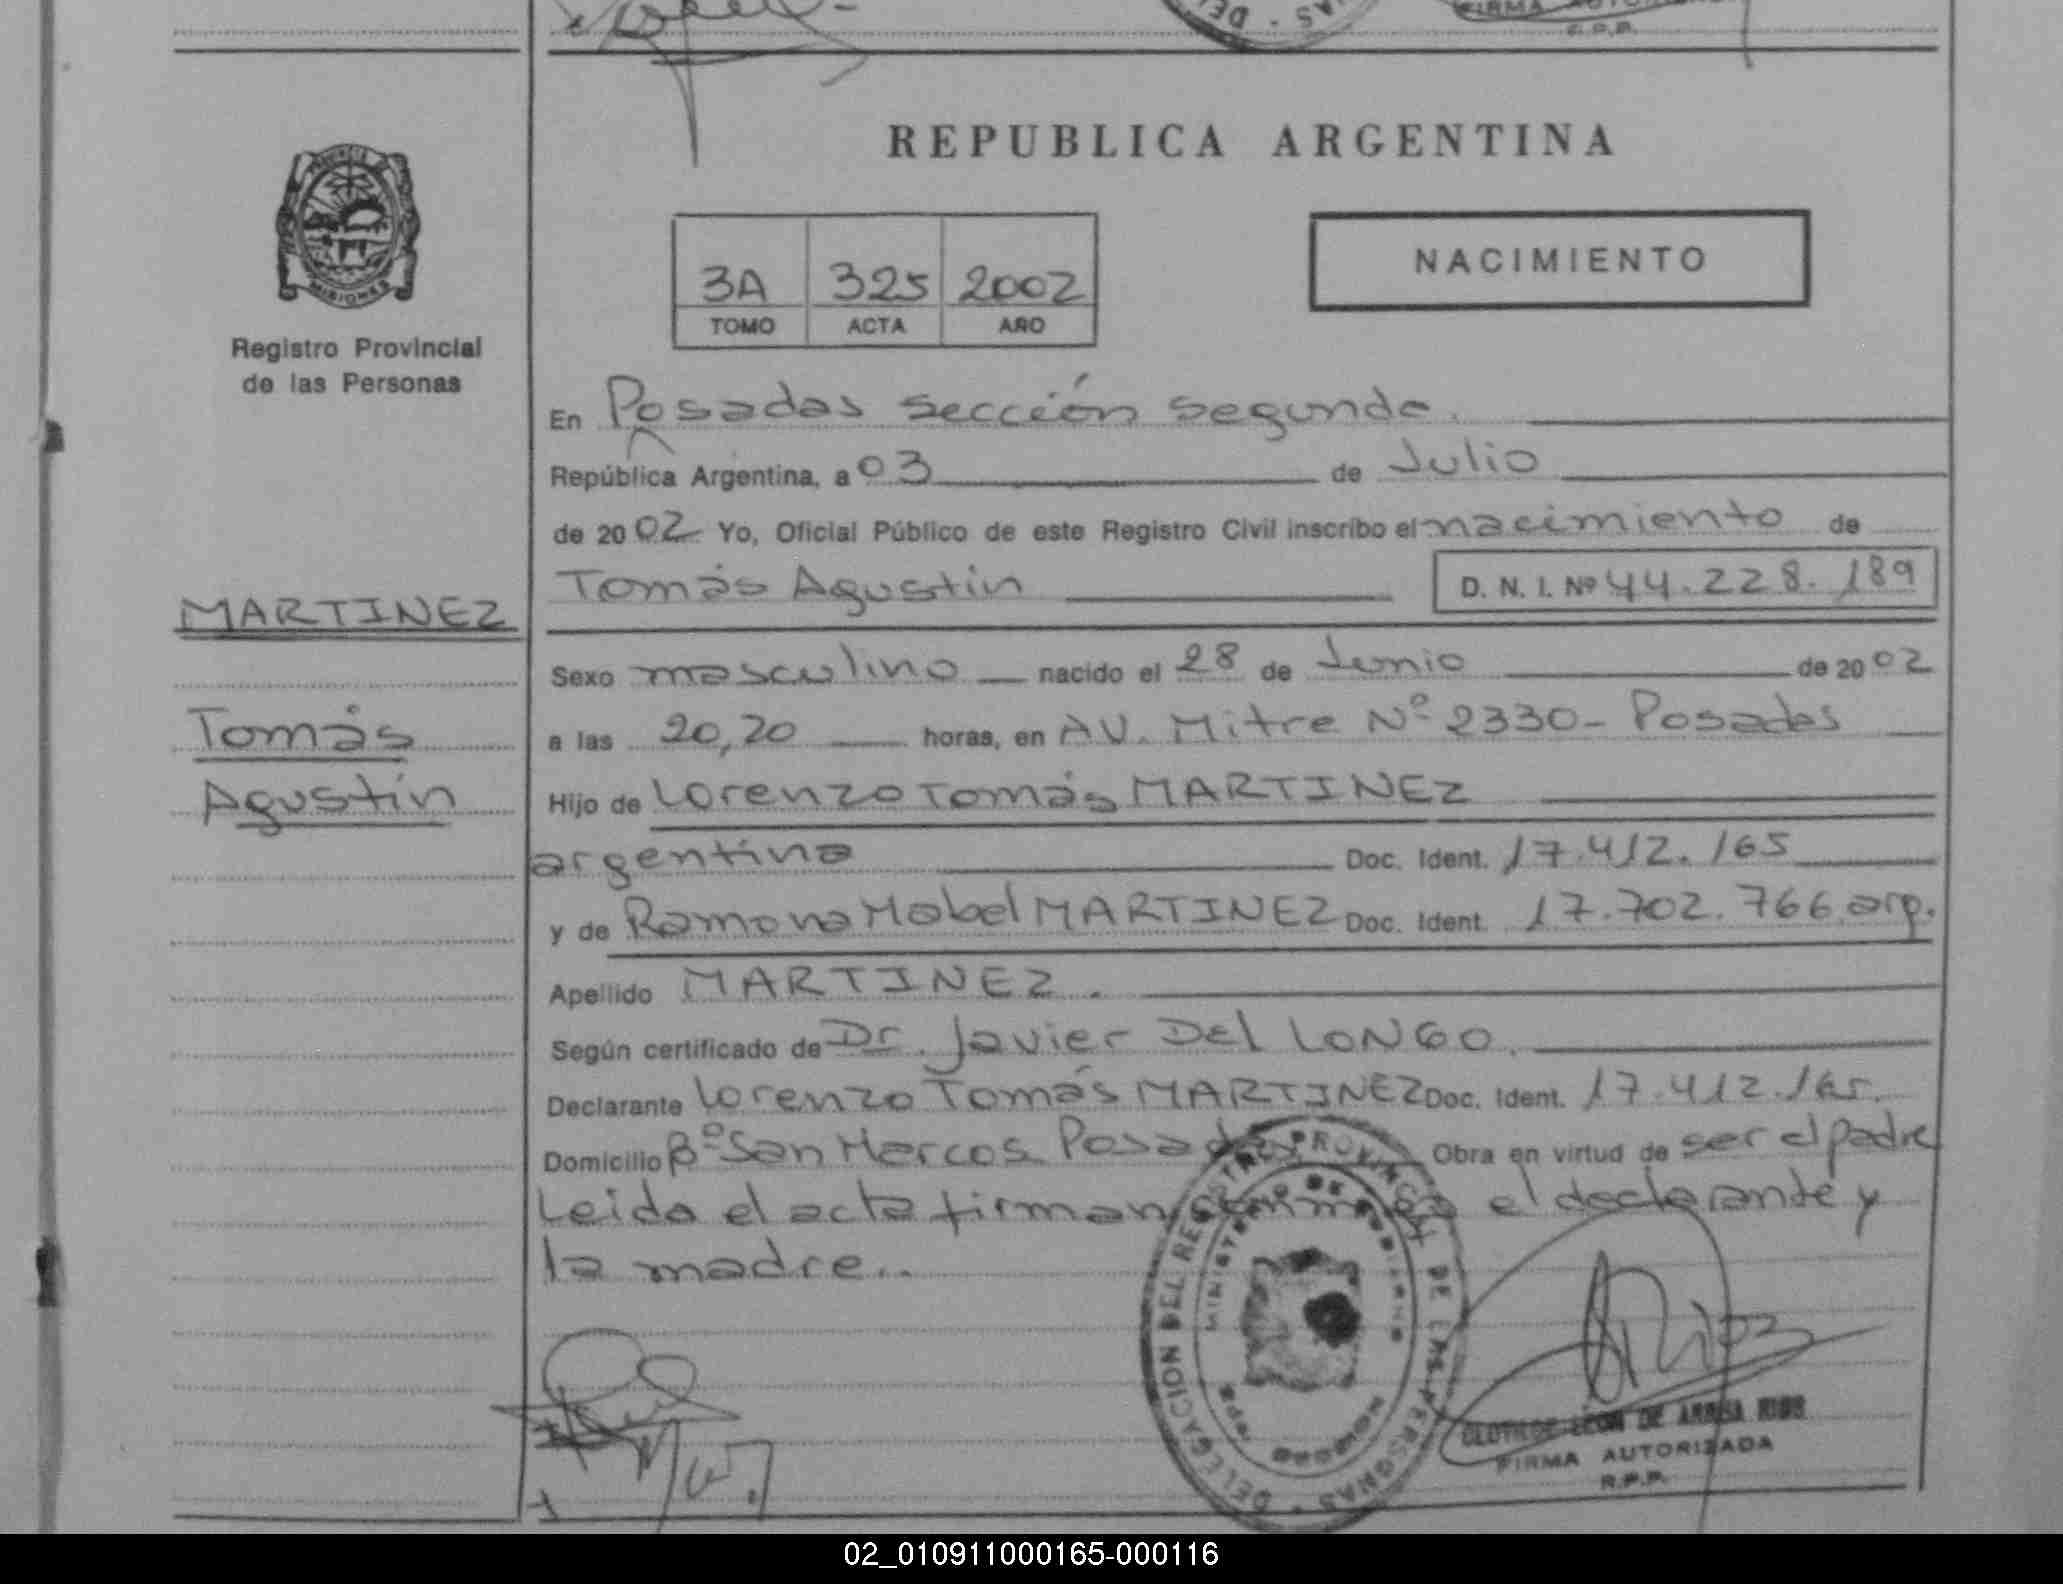 FIRMA
R.P.P.
REPUBLICA ARGENTINA
PROVINCIA DE
MISIONES
NACIMIENTO
3A 325 2002
TOMO ACTA AÑO
Registro Provincial
de las Personas
En Posadas sección segunda.
República Argentina, a 03 de Julio
de 2002 Yo, Oficial Público de este Registro Civil inscribo el nacimiento de
Tomás Agustín D. N. I. Nº 44.228.189
MARTINEZ
Sexo masculino nacido el 28 de Junio de 2002
Tomás
a las 20,20 horas, en AV. Mitre Nº 2330- Posadas
Agustín
Hijo de Lorenzo Tomás MARTINEZ
argentina Doc. Ident. 17.412.165
y de Ramona Mabel MARTINEZ Doc. Ident. 17.702.766 arg.
Apellido MARTINEZ.
Según certificado de Dr. Javier Del LONGO.
Declarante Lorenzo Tomás MARTINEZ Doc. Ident. 17.412.165.
Domicilio Bº San Marcos Posadas Obra en virtud de ser el padre
Leida el acta firman conmigo el declarante y
la madre..
DELEGACION DEL REGISTRO PROVINCIAL DE LAS PERSONAS
MINISTERIO DE GOBIERNO
MISIONES
CLOTILDE LEON DE RIOS
FIRMA AUTORIZADA
R.P.P.
02_010911000165-000116